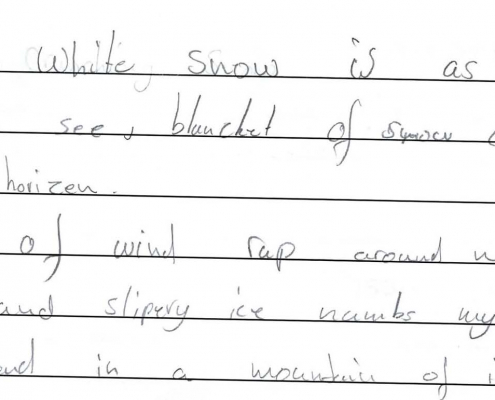 White, snow is as
see, blancket of snow
horizen.
of wind rap around
and slipery ice numbs my
in a mountain of